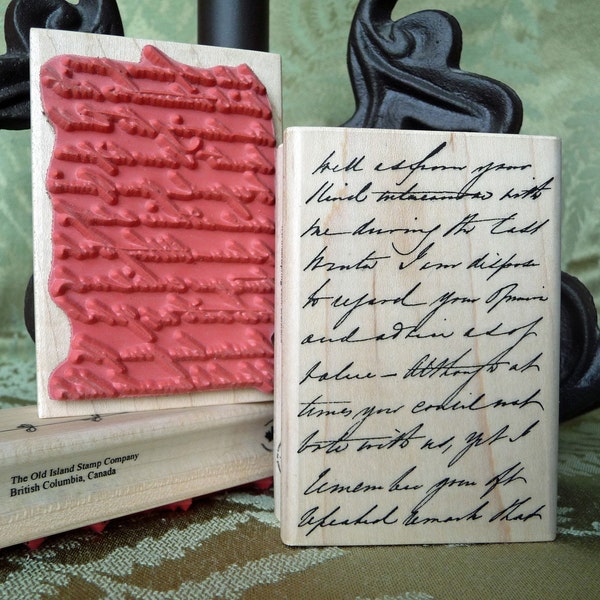 well as from your
kind intercourse with
me during the last
winter I am dispose
to regard your opinion
and advice as of
value – Although at
times you could not
vote with us, yet I
remember your oft
repeated remark that
The Old Island Stamp Company
British Columbia, Canada